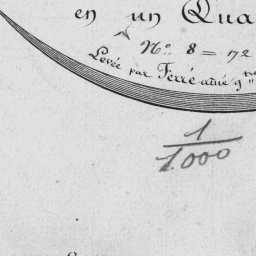 en un Qua
N.º 8 = 72
Levée par Ferré ainé g.
1
1.000